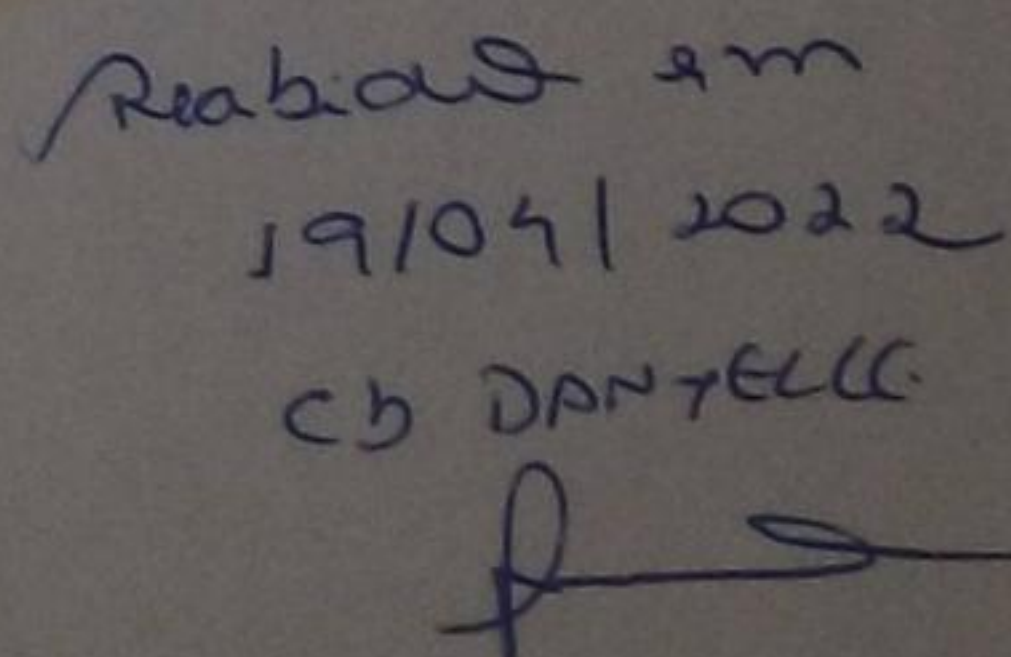 Recebido em
19/04/2022
Cb DANYELLE